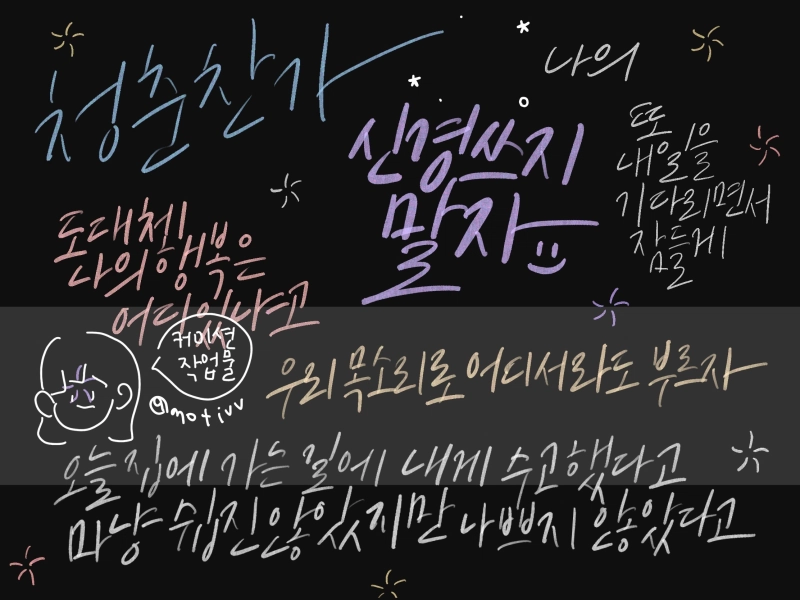 청춘찬가
나의
신경쓰지
말자
또
내일을
기다리면서
잠들게
도대체
나의 행복은
어디있냐고
커미션
작업물
@motivv
우리 목소리로 어디서라도 부르자
오늘 집에 가는 길에 내게 수고했다고
마냥 쉽진않았지만 나쁘지 않았다고